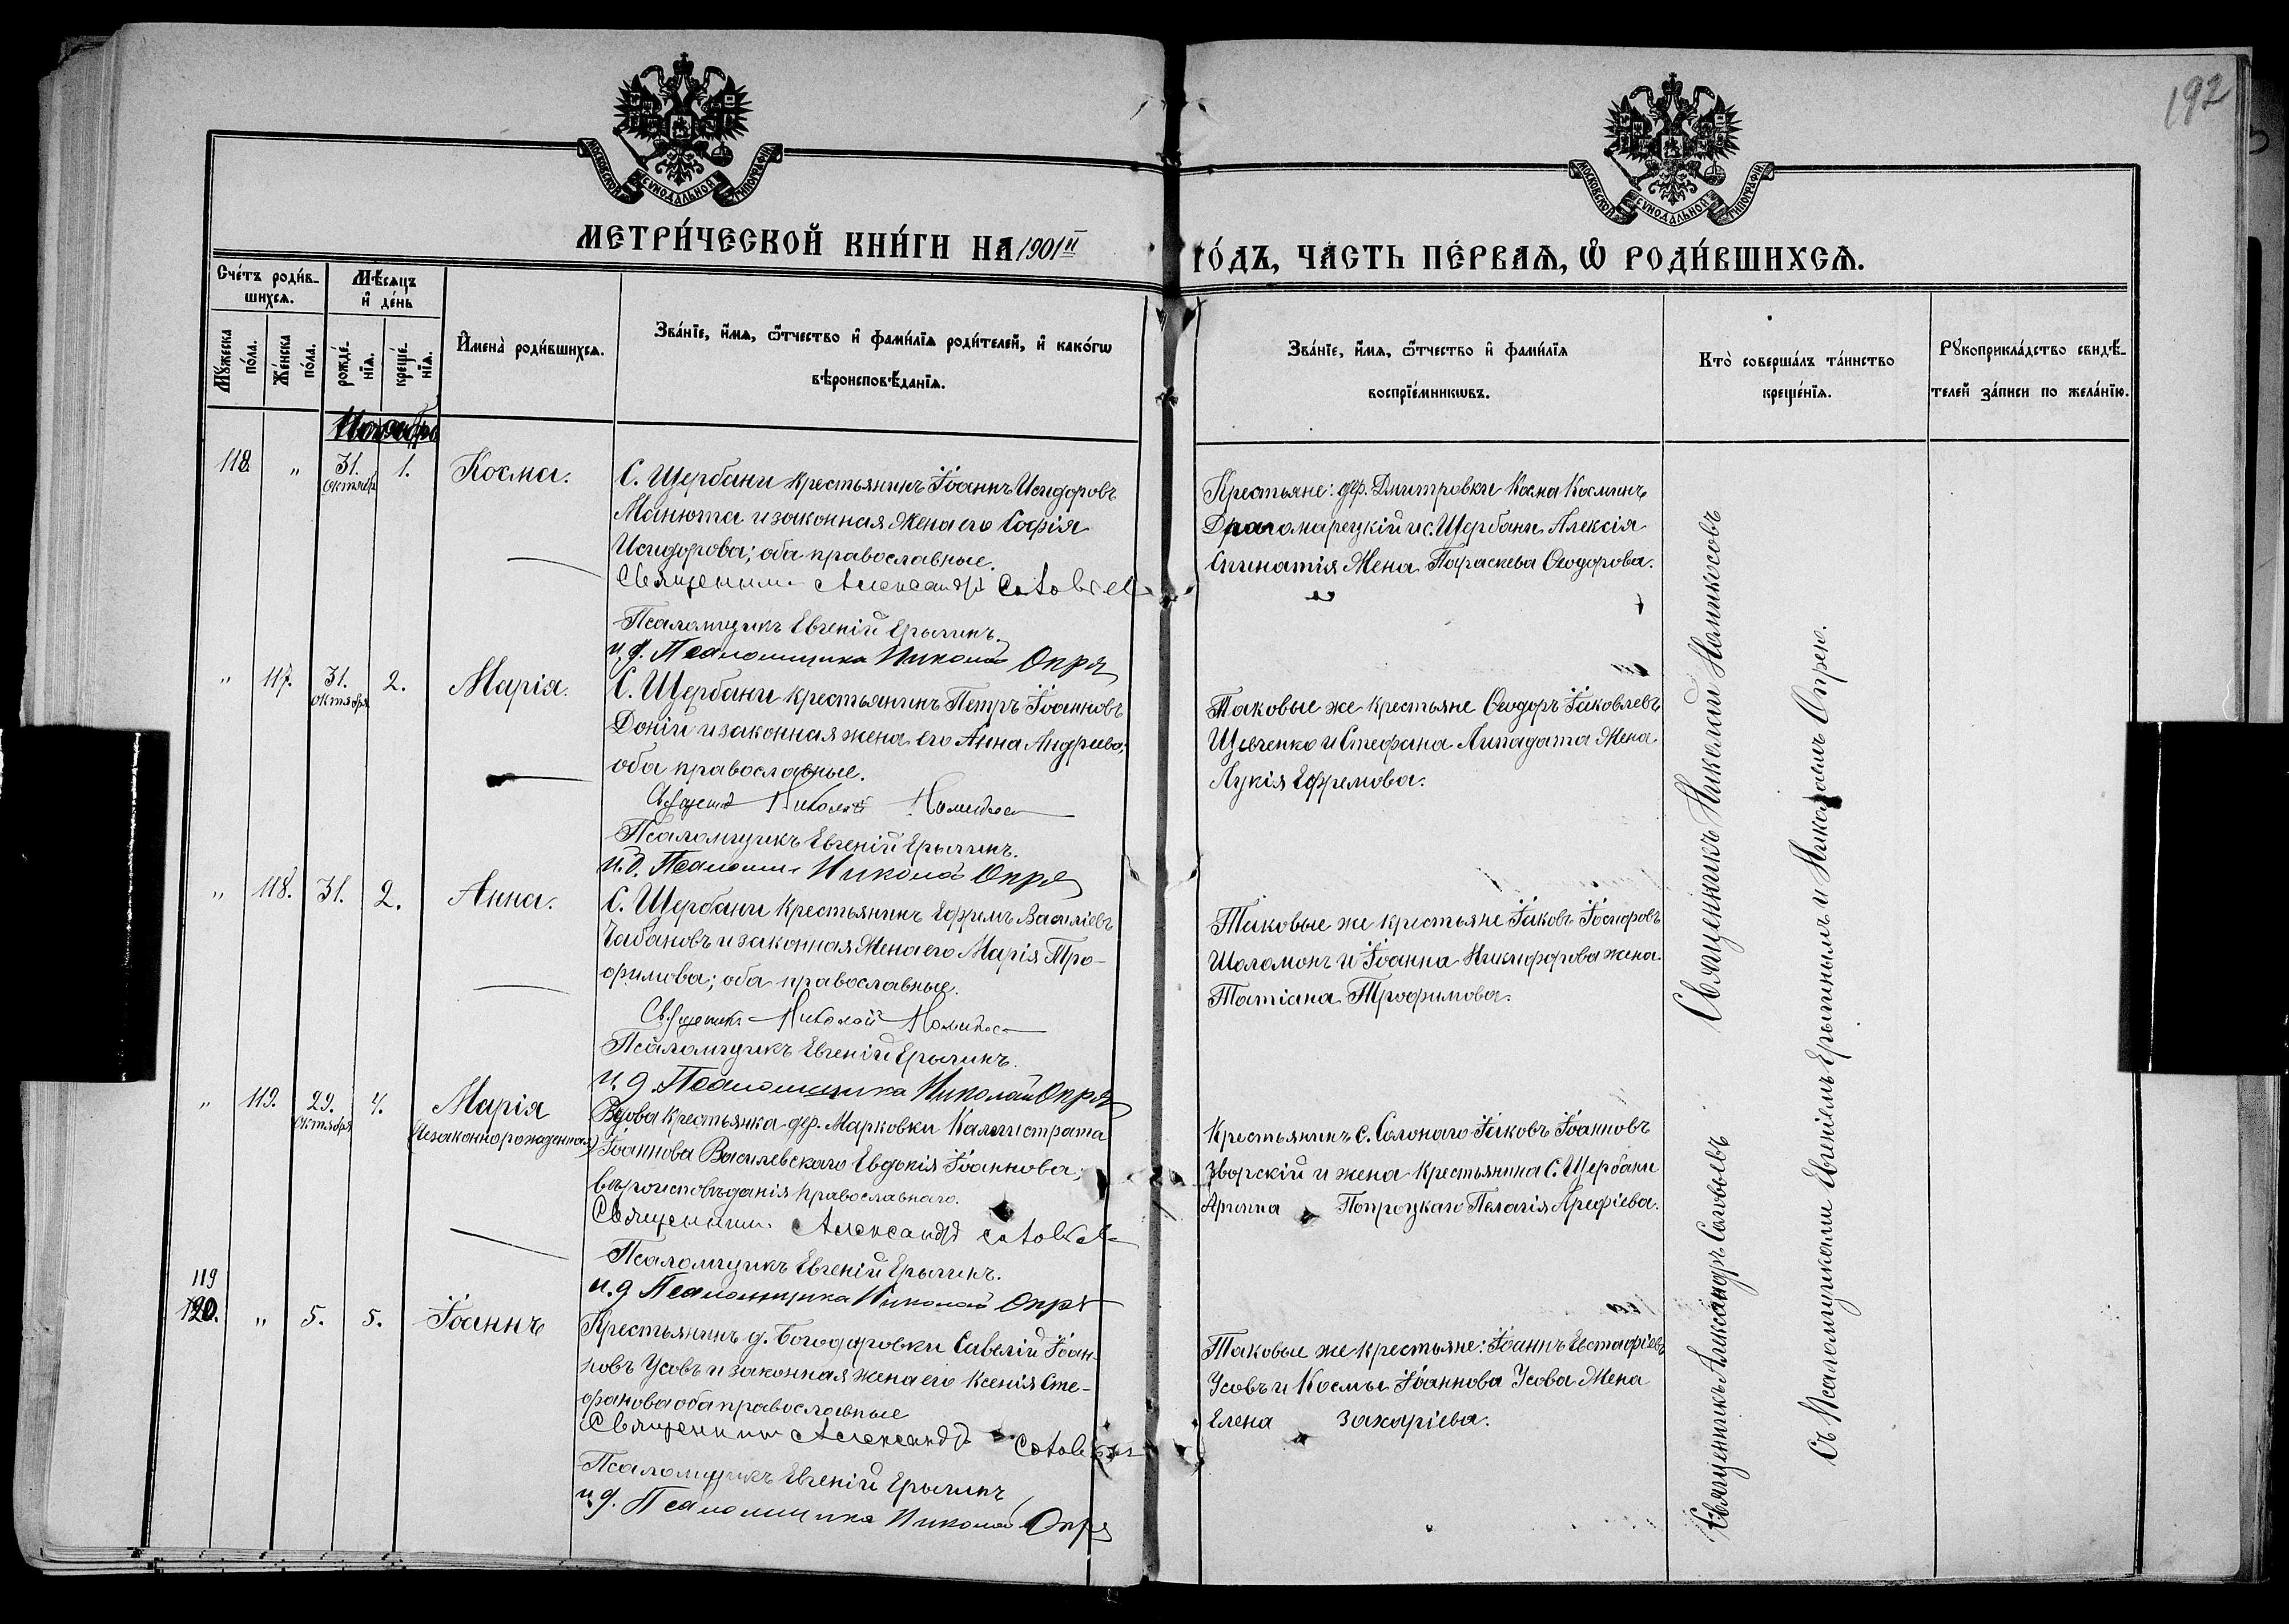 192
МОСКОВСКОЙ СѴНОДАЛЬНОЙ ТИПОГРАФІИ
МОСКОВСКОЙ СѴНОДАЛЬНОЙ ТИПОГРАФІИ
МЕТРИ́ЧЕСКОЙ КНИ́ГИ НА 1901й ГО́ДЪ, ЧА́СТЬ ПЕ́РВАѦ, Ѡ҆ РОДИ́ВШИХСѦ.
Сче́тъ роди́в-
шихсѧ.
Мѣ́сѧцъ
и҆ де́нь
Мꙋ́жеска
по́ла.
Же́нска
по́ла.
рожде́-
нїѧ.
креще́-
нїѧ.
И҆мена̀ роди́вшихсѧ.
Зва́нїе, и҆́мѧ, ѻ҆́тчество и҆ фами́лїѧ роди́телей, и҆ како́гѡ
вѣроисповѣ́данїѧ.
Зва́нїе, и҆́мѧ, ѻ҆́тчество и҆ фами́лїѧ
воспрїе́мникѡвъ.
Кто̀ соверша́лъ та́инство
креще́нїѧ.
Рꙋкоприкла́дство свидѣ́-
телей за́писи по жела́нїю.
118. " 31. октября 1. Косма.
С. Щербани крестьянинъ Іоаннъ Исидоровъ
Манюта и законная жена его Софія
Исидорова; оба православные.
Священникъ Александръ
Псаломщикъ Евгеній Ерыгинъ.
и. д. Псаломщика Николай Опря
Крестьяне: дер. Дмитровки Косма Косминъ
Драгомарецкій и с. Щербани Алексія
Спинатія жена Параскева Ѳеодорова.
" 117. 31. октября 2. Марія.
С. Щербани крестьянинъ Петръ Іоанновъ
Доній и законная жена его Анна Андреева;
оба православные.
Священникъ Николай
Псаломщикъ Евгеній Ерыгинъ.
и. д. Псаломщ. Николай Опря
Таковые же крестьяне Ѳеодоръ Іаковлевъ
Шевченко и Стефана Липадата жена
Лукія Ефремова.
" 118. 31. 2. Анна.
С. Щербани крестьянинъ Ефремъ Василіевъ
Чабановъ и законная жена его Марія Тро-
фимова; оба православные.
Священникъ Николай
Псаломщикъ Евгеній Ерыгинъ.
и. д. Псаломщика Николай Опря
Таковые же крестьяне Іаковъ Іосифовъ
Шоломонъ и Іоанна Никифорова жена
Татіана Трофимова.
" 119. 29. октября 4. Марія
(незаконнорожденная)
Вдова крестьянка дер. Марковки Каллистрата
Іоаннова Василевскаго Евдокія Іоаннова;
вѣроисповѣданія православнаго.
Священникъ Александръ
Псаломщикъ Евгеній Ерыгинъ.
и. д. Псаломщика Николай Опря
Крестьянинъ с. Солонаго Іаковъ Іоанновъ
Зворскій и жена крестьянина С. Щербани
Попроцкаго Пелагія Арефіева.
119
120. " 5. 5. Іоаннъ
Крестьянинъ д. Богодаровки Савелій Іоан-
новъ Усовъ и законная жена его Ксенія Сте-
фанова оба православные
Священникъ Александръ
Псаломщикъ Евгеній Ерыгинъ
и. д. Псаломщика Николай Опря
Таковые же крестьяне: Іоаннъ Евстафіевъ
Усовъ и Космы Іоаннова Усова жена
Елена Захаріева.
Священникъ Николай
Священникъ Александръ Соловьевъ
Съ Псаломщиками Евгеніемъ Ерыгинымъ и Николаемъ Опрею.